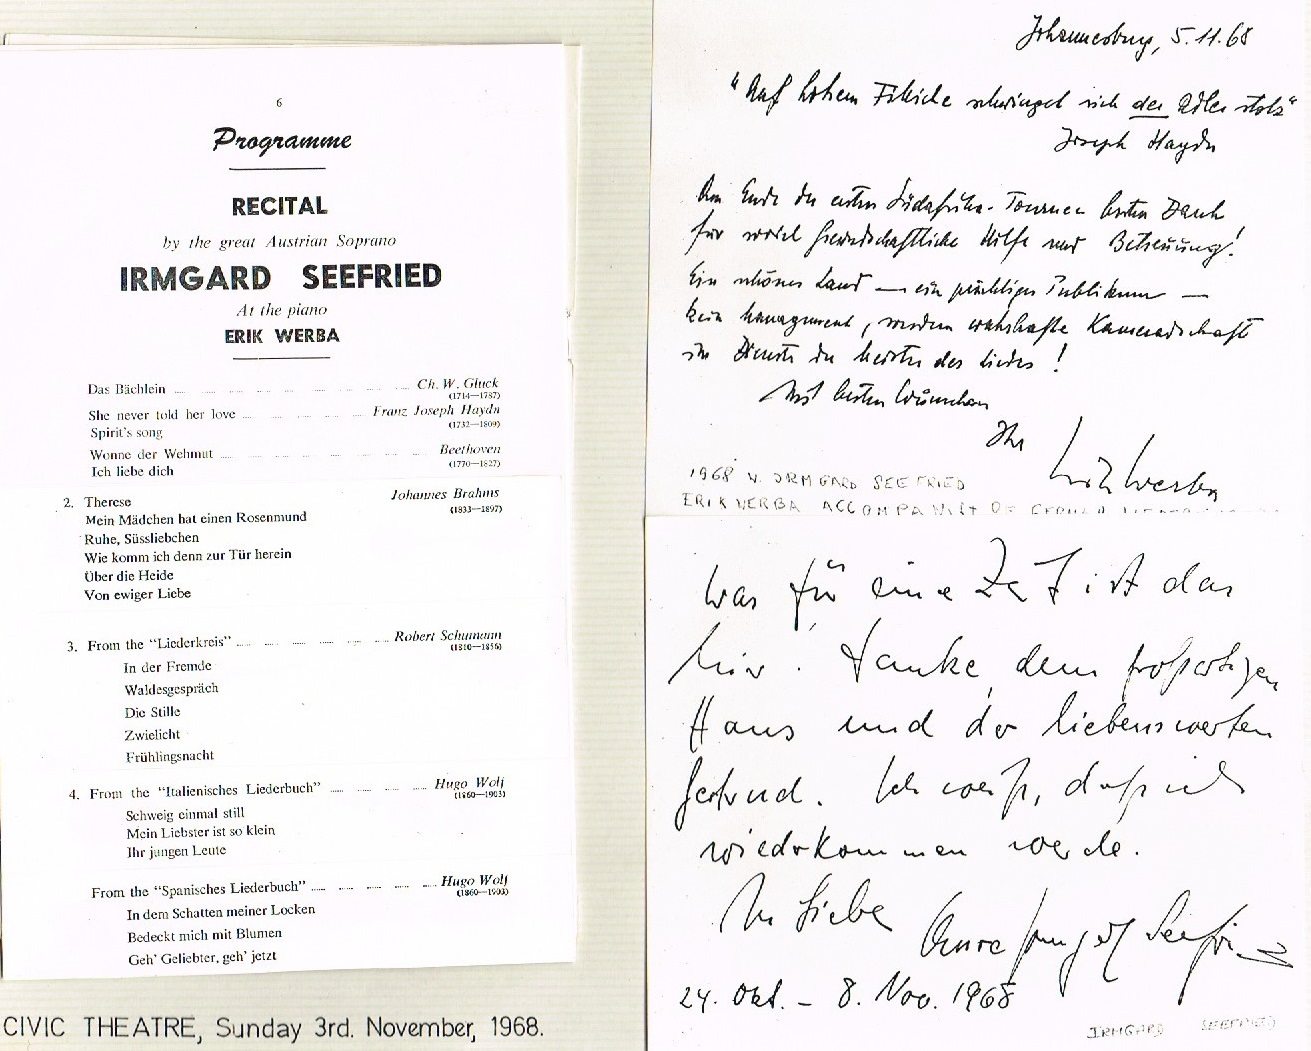 6
Programme
RECITAL
by the great Austrian Soprano
IRMGARD SEEFRIED
At the piano
ERIK WERBA
Das Bächlein ... Ch. W. Gluck
(1714—1787)
She never told her love ... Franz Joseph Haydn
(1732—1809)
Spirit's song
Wonne der Wehmut ... Beethoven
(1770—1827)
Ich liebe dich
2. Therese Johannes Brahms
(1833—1897)
Mein Mädchen hat einen Rosenmund
Ruhe, Süssliebchen
Wie komm ich denn zur Tür herein
Über die Heide
Von ewiger Liebe
3. From the "Liederkreis" ... Robert Schumann
(1810—1856)
In der Fremde
Waldesgespräch
Die Stille
Zwielicht
Frühlingsnacht
4. From the "Italienisches Liederbuch" ... Hugo Wolf
(1860—1903)
Schweig einmal still
Mein Liebster ist so klein
Ihr jungen Leute
From the "Spanisches Liederbuch" ... Hugo Wolf
(1860—1903)
In dem Schatten meiner Locken
Bedeckt mich mit Blumen
Geh' Geliebter, geh' jetzt
CIVIC THEATRE, Sunday 3rd. November, 1968.
Johannesburg, 5.11.68
"Auf hohem Fittiche schwinget sich der Adler stolz"
Joseph Haydn
Am Ende der ersten Südafrika-Tournee besten Dank
für soviel freundschaftliche Hilfe und Betreuung!
Ein schönes Land — ein prächtiges Publikum —
kein management, sondern wahrhafte Kameradschaft
im Dienste der Meister des Liedes!
Mit besten Wünschen
Ihr Erik Werba
1968 W. IRMGARD SEEFRIED
ERIK WERBA ACCOMPANIST OF
Was für eine Zeit ist das
hier. Danke dem großartigen
Haus und der liebenswerten
Gertrud. Ich weiß, daß ich
wiederkommen werde.
In Liebe
Eure Irmgard Seefried
24. Okt. – 8. Nov. 1968
IRMGARD SEEFRIED